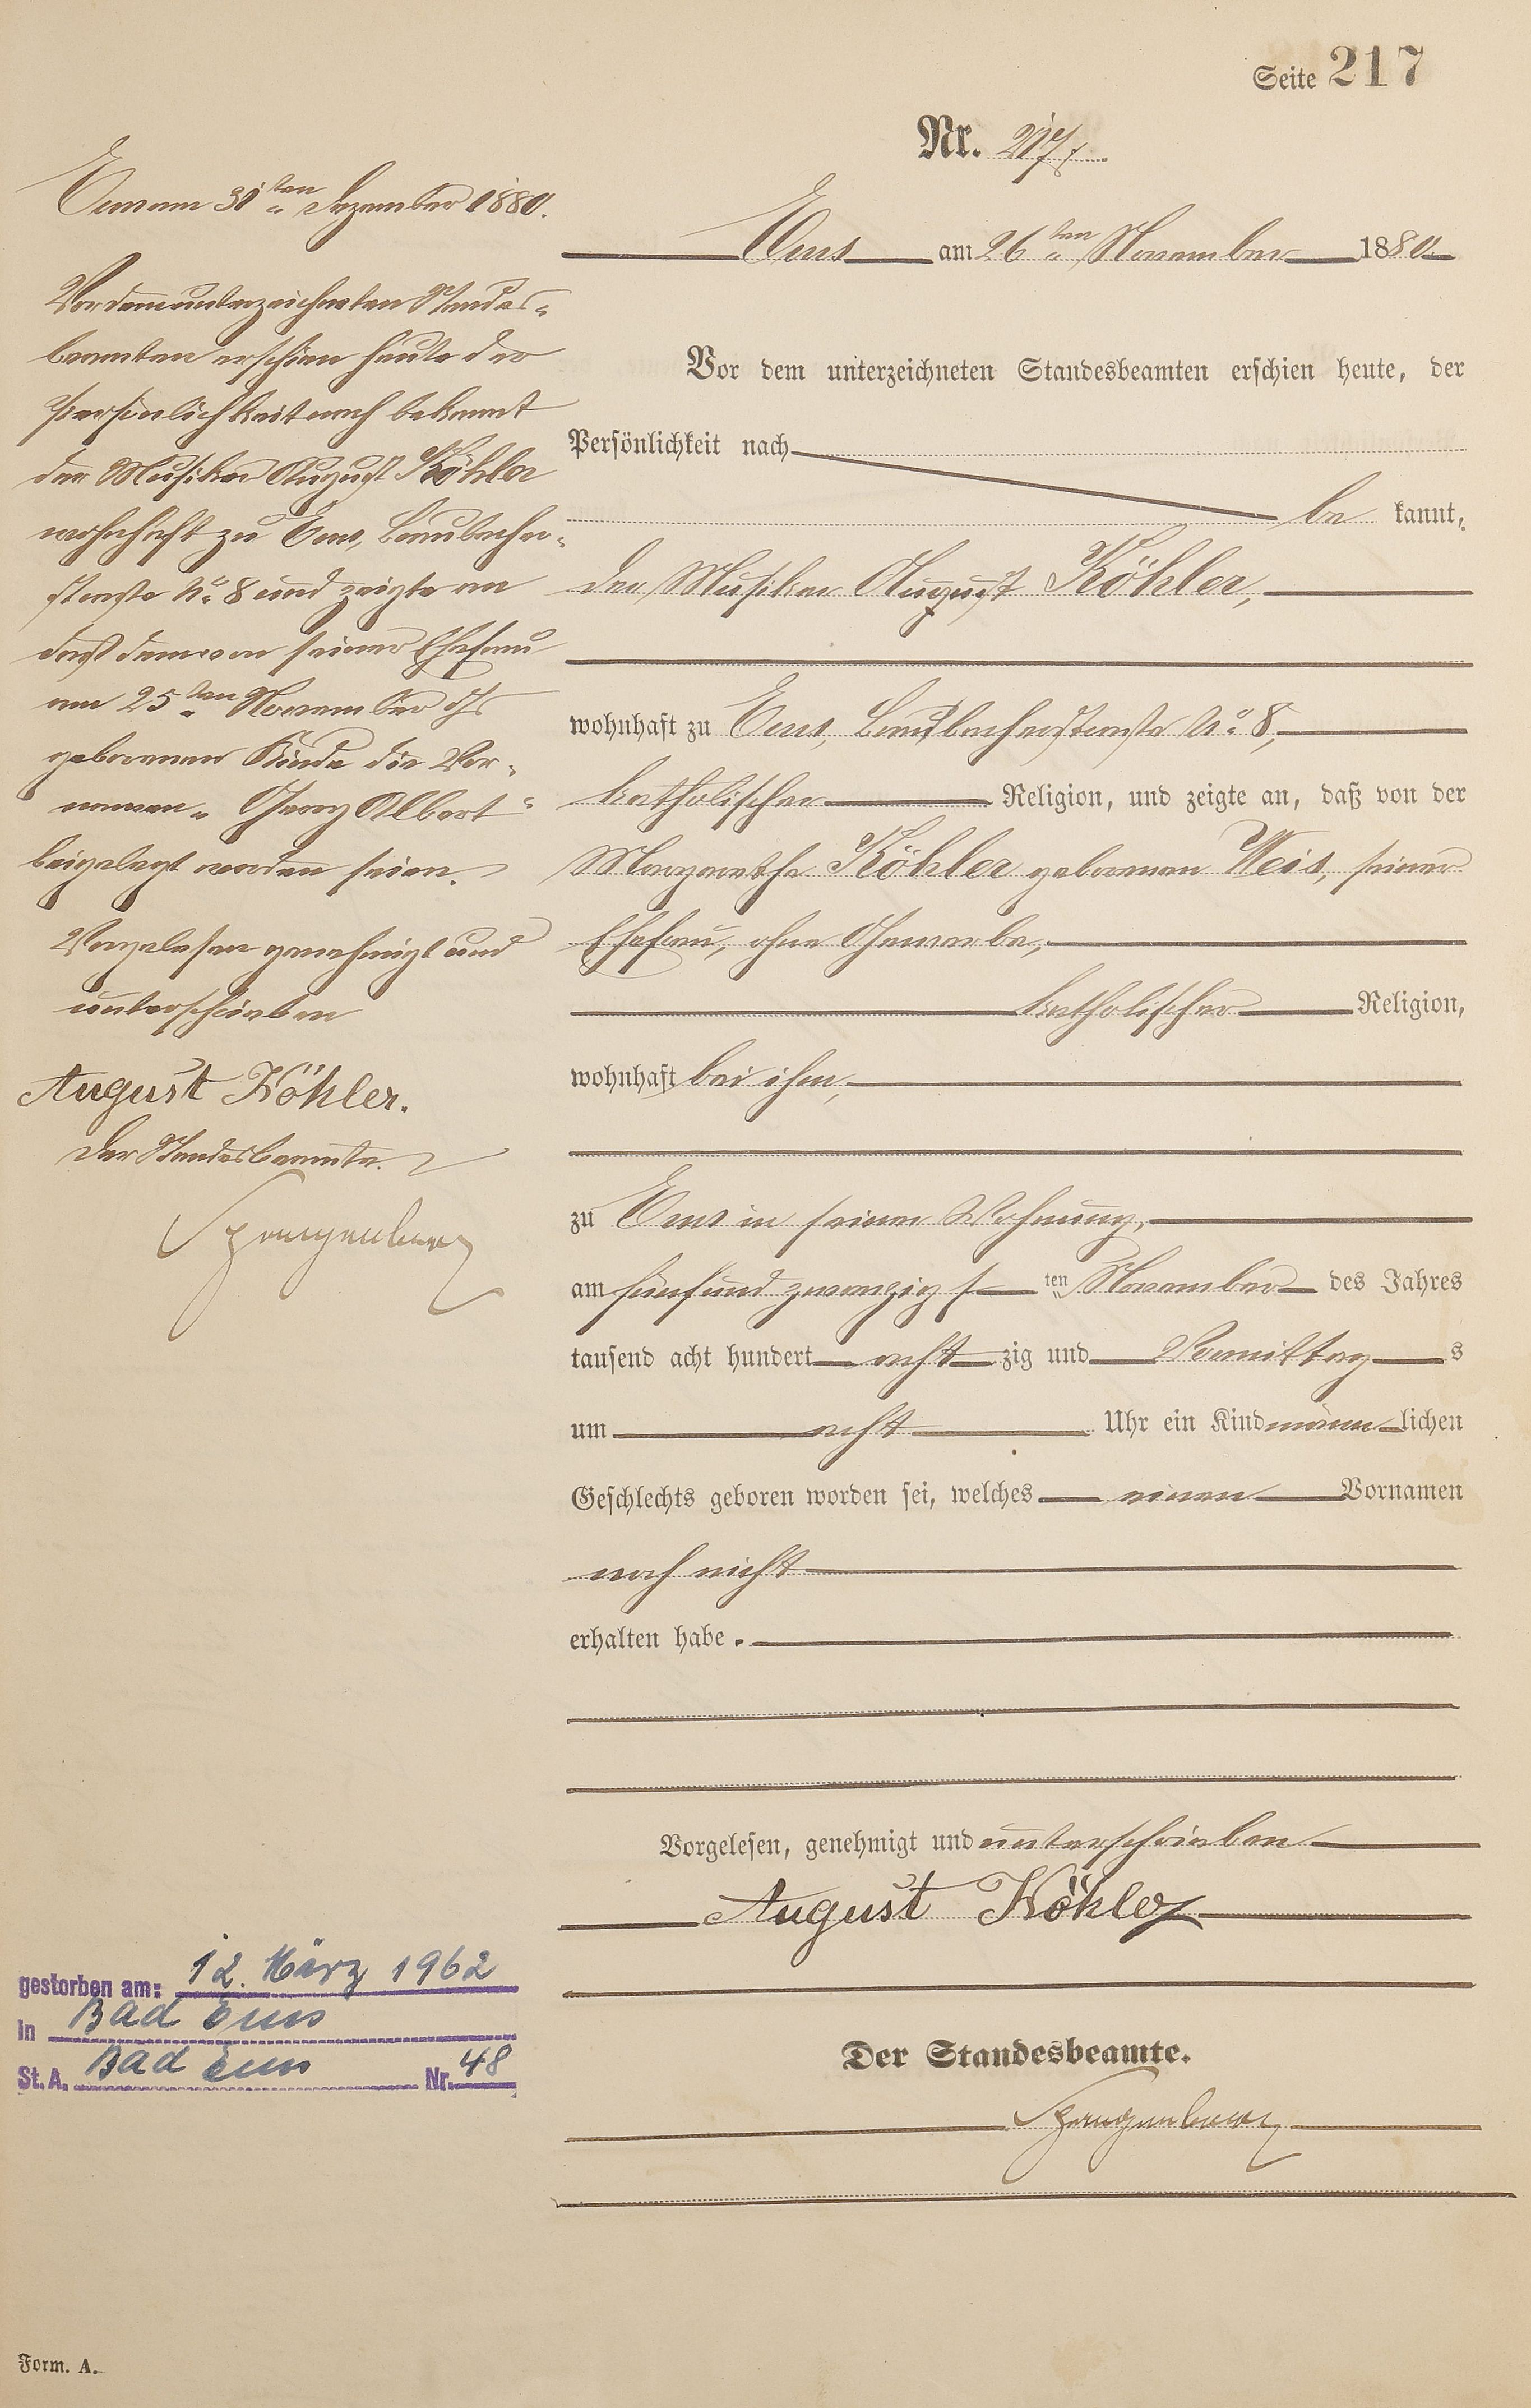 Seite 217
Nr. 217.
Ems am 26ten November 1880
Vor dem unterzeichneten Standesbeamten erschien heute, der
Persönlichkeit nach
be kannt,
der Musiker August Köhler,
wohnhaft zu Ems, Braubacherstraße No. 8,
katholischer Religion, und zeigte an, daß von der
Margarethe Köhler geborenen Weis, seiner
Ehefrau, ohne Gewerbe,
katholischer Religion,
wohnhaft bei ihm,
zu Ems in seiner Wohnung,
am fünfundzwanzigsten November des Jahres
tausend acht hundert achtzig und Vormittags
um acht Uhr ein Kind männlichen
Geschlechts geboren worden sei, welches einen Vornamen
noch nicht
erhalten habe.
Vorgelesen, genehmigt und unterschrieben
August Köhler
Der Standesbeamte.
Spangenberg
Ems am 31ten Dezember 1880.
Vor dem unterzeichneten Standes-
beamten erschien heute der
Persönlichkeit nach bekannt
der Musiker August Köhler
wohnhaft zu Ems, Braubacher-
straße No. 8 und zeigte an
daß dem von seiner Ehefrau
am 25ten November
geborenen Kinde die Vor-
namen „Georg Albert"
beigelegt worden seien.
Vorgelesen genehmigt und
unterschrieben
August Köhler.
Der Standesbeamte.
Spangenberg
gestorben am: 12. März 1962
in Bad Ems
St. A. Bad Ems Nr. 48
Form. A.